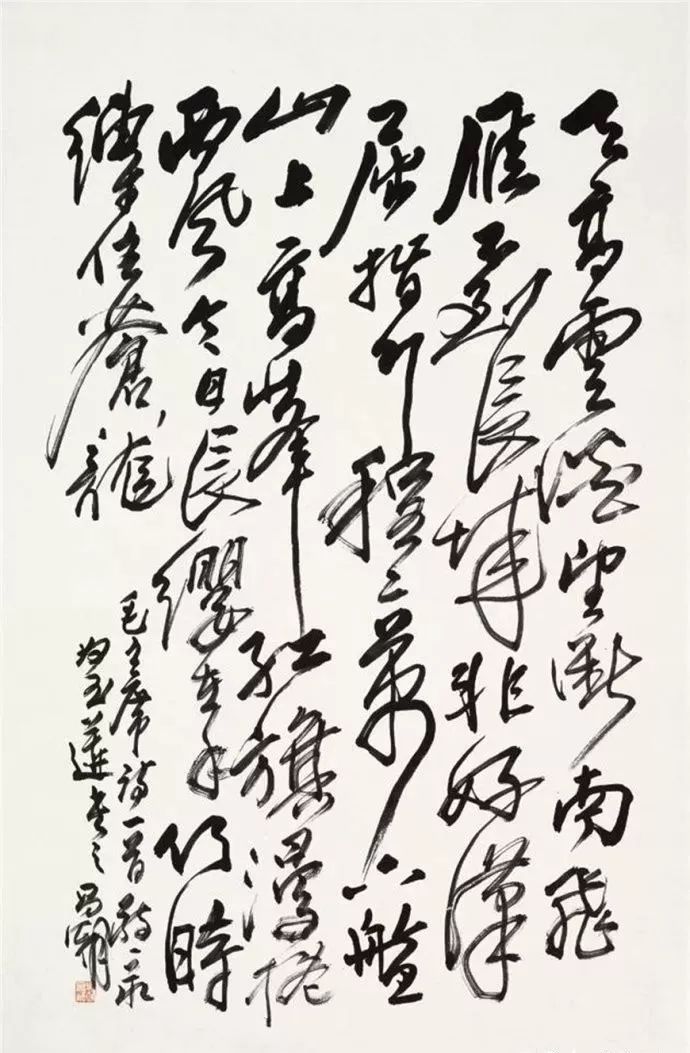 天高雲淡望斷南飛
雁不到長城非好漢
屈指行程二萬六盤
山上高峰紅旗漫捲
西風今日長纓在手何時
縛住蒼龍
毛主席詩一首
为玉蓮書之